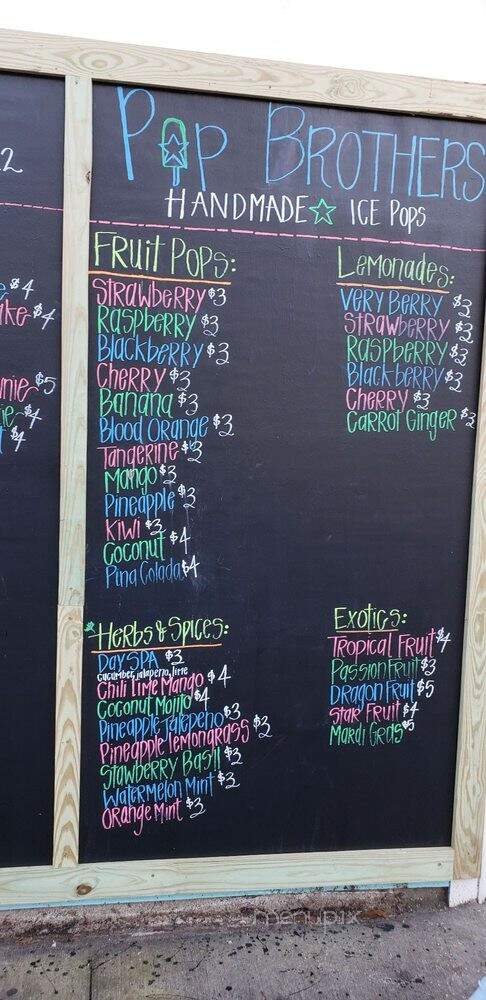 Pop Brothers
Handmade Ice Pops
Fruit Pops:
Strawberry $3
Raspberry $3
Blackberry $3
Cherry $3
Banana $3
Blood Orange $3
Tangerine $3
Mango $3
Pineapple $3
Kiwi $3
Coconut $4
Pina Colada $4
Lemonades:
Very Berry $3
Strawberry $3
Raspberry $3
Blackberry $3
Cherry $3
Carrot Ginger $3
Herbs & Spices:
Day Spa $3
cucumber, jalapeno, lime
Chili Lime Mango $4
Coconut Mojito $4
Pineapple Jalepeno $3
Pineapple Lemongrass $3
Stawberry Basil $3
Watermelon Mint $3
Orange Mint $3
Exotics:
Tropical Fruit $4
Passion Fruit $3
Dragon Fruit $5
Star Fruit $4
Mardi Gras $5
$4
$4
$5
$4
$4
menupix